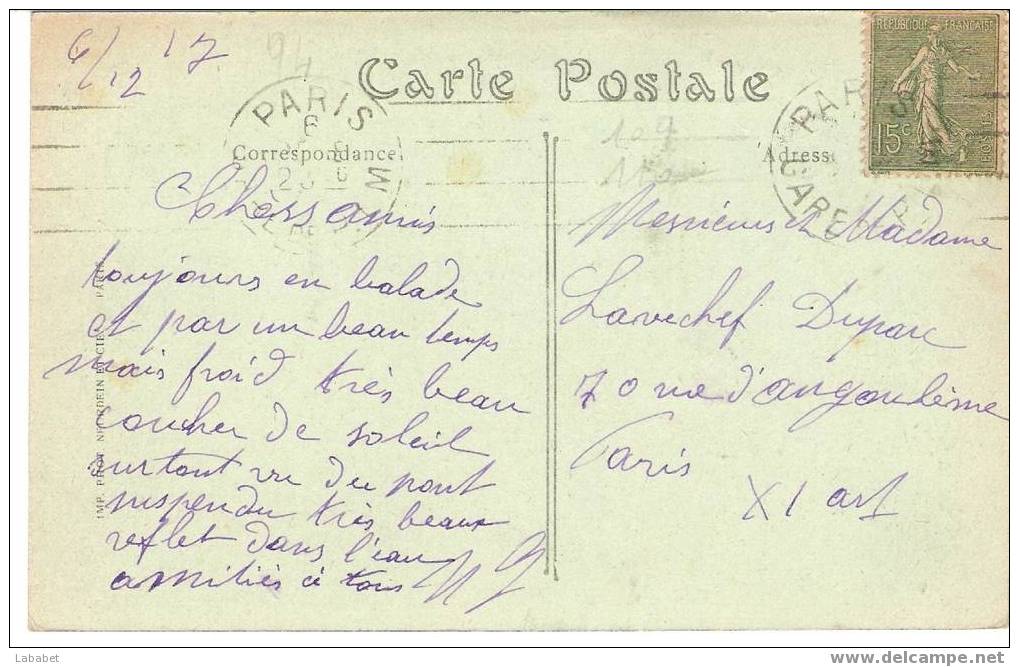 6/12 17
94
Carte Postale
RÉPUBLIQUE FRANÇAISE
15c
POSTES
PARIS
6
23
PARIS
GARE
Correspondance
Adresse
109
Chers amis
toujours en balade
et par un beau temps
mais froid très beau
coucher de soleil
surtout vu du pont
suspendu très beaux
reflet dans l'eau
amitiés à tous
Messieurs & Madame
Lavechef Duparc
70 rue d'angoulème
Paris
XI arr
IMP. PHOT. NEURDEIN ET CIE. PARIS
Lababet
www.delcampe.net